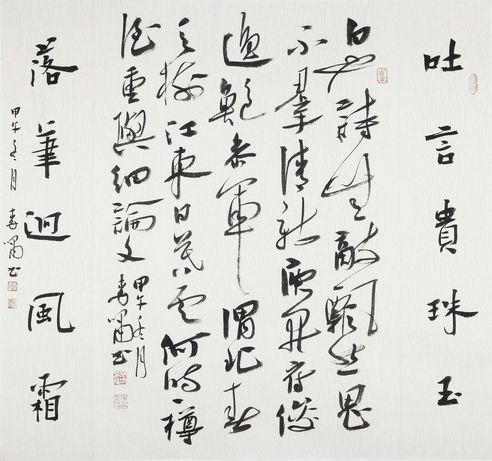 吐言貴珠玉
白也詩無敵飄然思
不羣清新庾開府俊
逸鮑參軍渭北春
天樹江東日暮雲何時一樽
酒重與細論文
甲午冬月
落筆迴風霜
甲午冬月